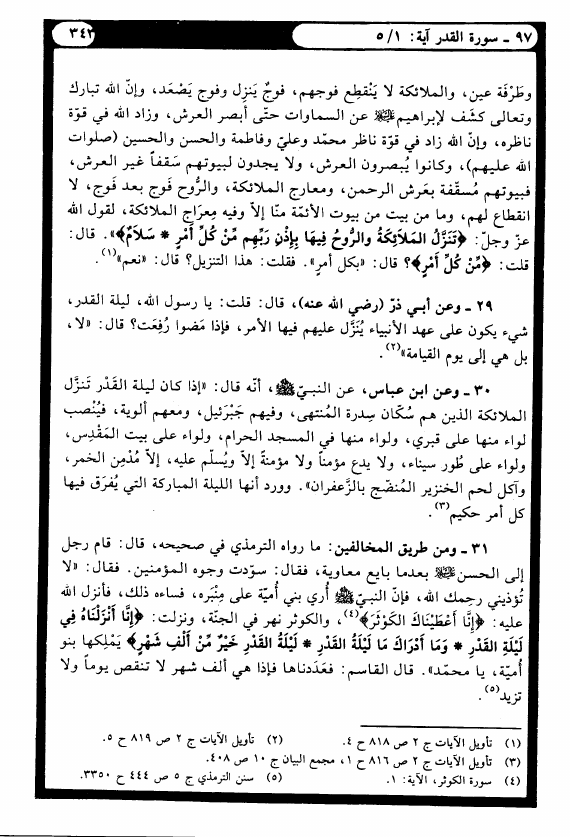 ٩٧ ـ سورة القدر آية: ١/ ٥
٣٤٣
وطَرْفَة عين، والملائكة لا يَنْقطِع فوجهم، فوجٌ يَنزِل وفوج يَصْعَد، وإنّ الله تبارك
وتعالى كشَف لإبراهيم عليه السلام عن السماوات حتّى أبصر العرش، وزاد الله في قوّة
ناظره، وإنّ الله زاد في قوّة ناظر محمّد وعليّ وفاطمة والحسن والحسين (صلوات
الله عليهم)، وكانوا يُبصرون العرش، ولا يجدون لبيوتهم سَقفاً غير العرش،
فبيوتهم مُسقّفة بعَرش الرحمن، ومعارج الملائكة، والرُّوح فوج بعد فوج، لا
انقطاع لهم، وما من بيت من بيوت الأئمّة منّا إلاّ وفيه مِعراج الملائكة، لقول الله
عزّ وجلّ: ﴿تَنَزَّلُ المَلاَئِكَةُ والرُّوحُ فِيهَا بِإِذْنِ رَبِّهِم مِّنْ كُلِّ أَمْرٍ * سَلاَمٌ﴾». قال:
قلت: ﴿مِّنْ كُلِّ أَمْرٍ﴾؟ قال: «بكل أمرٍ». فقلت: هذا التنزيل؟ قال: «نعم»(١).
٢٩ ـ وعن أبي ذرّ (رضي الله عنه)، قال: قلت: يا رسول الله، ليلة القدر،
شيء يكون على عهد الأنبياء يُنَزَّل عليهم فيها الأمر، فإذا مَضوا رُفِعَت؟ قال: «لا،
بل هي إلى يوم القيامة»(٢).
٣٠ ـ وعن ابن عباس، عن النبيّ ﷺ، أنّه قال: «إذا كان ليلة القَدْر تَنزَّل
الملائكة الذين هم سُكّان سِدرة المُنتهى، وفيهم جَبْرَئيل، ومعهم ألوية، فيُنْصب
لواء منها على قبري، ولواء منها في المسجد الحرام، ولواء على بيت المَقْدِس،
ولواء على طُور سيناء، ولا يدع مؤمناً ولا مؤمنةً إلاّ ويُسلّم عليه، إلاّ مُدْمِن الخمر،
وآكل لحم الخنزير المُنضّج بالزَّعفران». وورد أنها الليلة المباركة التي يُفرَق فيها
كل أمر حكيم(٣).
٣١ ـ ومن طريق المخالفين: ما رواه الترمذي في صحيحه، قال: قام رجل
إلى الحسن عليه السلام بعدما بايع معاوية، فقال: سوّدت وجوه المؤمنين. فقال: «لا
تُؤذيني رحمك الله، فإنّ النبيّ ﷺ أُري بني أُميّة على مِنْبَره، فساءه ذلك، فأنزل الله
عليه: ﴿إِنَّا أَعْطَيْنَاكَ الكَوْثَرَ﴾(٤)، والكوثر نهر في الجنّة، ونزلت: ﴿إِنَّا أَنْزَلْنَاهُ فِي
لَيْلَةِ القَدْرِ * وَمَا أَدْرَاكَ مَا لَيْلَةُ القَدْرِ * لَيْلَةُ القَدْرِ خَيْرٌ مِّنْ أَلْفِ شَهْرٍ﴾ يَمْلِكها بنو
أُميّة، يا محمّد». قال القاسم: فعَدَدناها فإذا هي ألف شهر لا تنقص يوماً ولا
تزيد(٥).
(١) تأويل الآيات ج ٢ ص ٨١٨ ح ٤. (٢) تأويل الآيات ج ٢ ص ٨١٩ ح ٥.
(٣) تأويل الآيات ج ٢ ص ٨١٦ ح ١، مجمع البيان ج ١٠ ص ٤٠٨.
(٤) سورة الكوثر، الآية: ١. (٥) سنن الترمذي ج ٥ ص ٤٤٤ ح ٣٣٥٠.